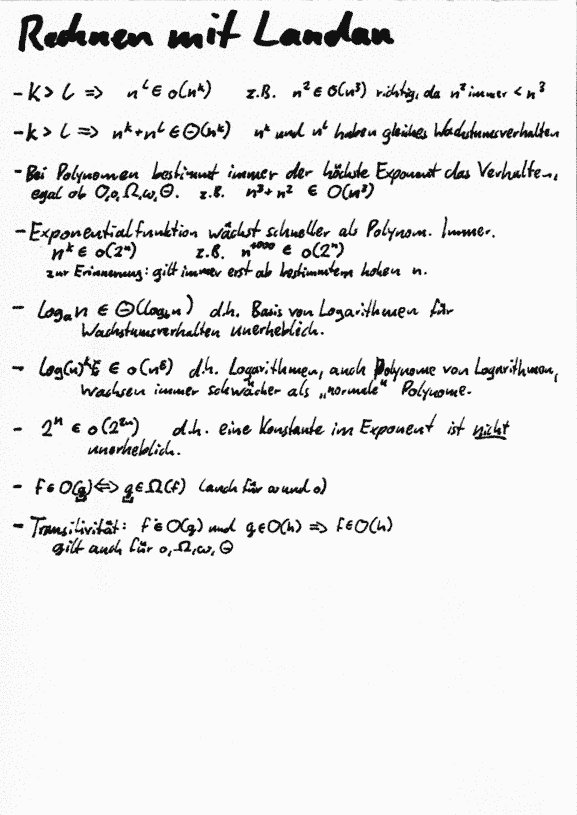 Rechnen mit Landau
- k > l => n^l ∈ o(n^k) z.B. n² ∈ O(n³) richtig, da n² immer < n³
- k > l => n^k + n^l ∈ Θ(n^k) n^k und n^l haben gleiches Wachstumsverhalten
- Bei Polynomen bestimmt immer der höchste Exponent das Verhalten,
egal ob O, o, Ω, ω, Θ. z.B. n³ + n² ∈ O(n³)
- Exponentialfunktion wächst schneller als Polynom. Immer.
n^k ∈ o(2^n) z.B. n^1000 ∈ o(2^n)
zur Erinnerung: gilt immer erst ab bestimmtem hohen n.
- log_a n ∈ Θ(log_b n) d.h. Basis von Logarithmen für
Wachstumsverhalten unerheblich.
- log(n)^k ∈ o(n^ε) d.h. Logarithmen, auch Polynome von Logarithmen,
wachsen immer schwächer als „normale“ Polynome.
- 2^n ∈ o(2^{2n}) d.h. eine Konstante im Exponent ist nicht
unerheblich.
- f ∈ O(g) <=> g ∈ Ω(f) (auch für ω und o)
- Transitivität: f ∈ O(g) und g ∈ O(h) => f ∈ O(h)
gilt auch für o, Ω, ω, Θ